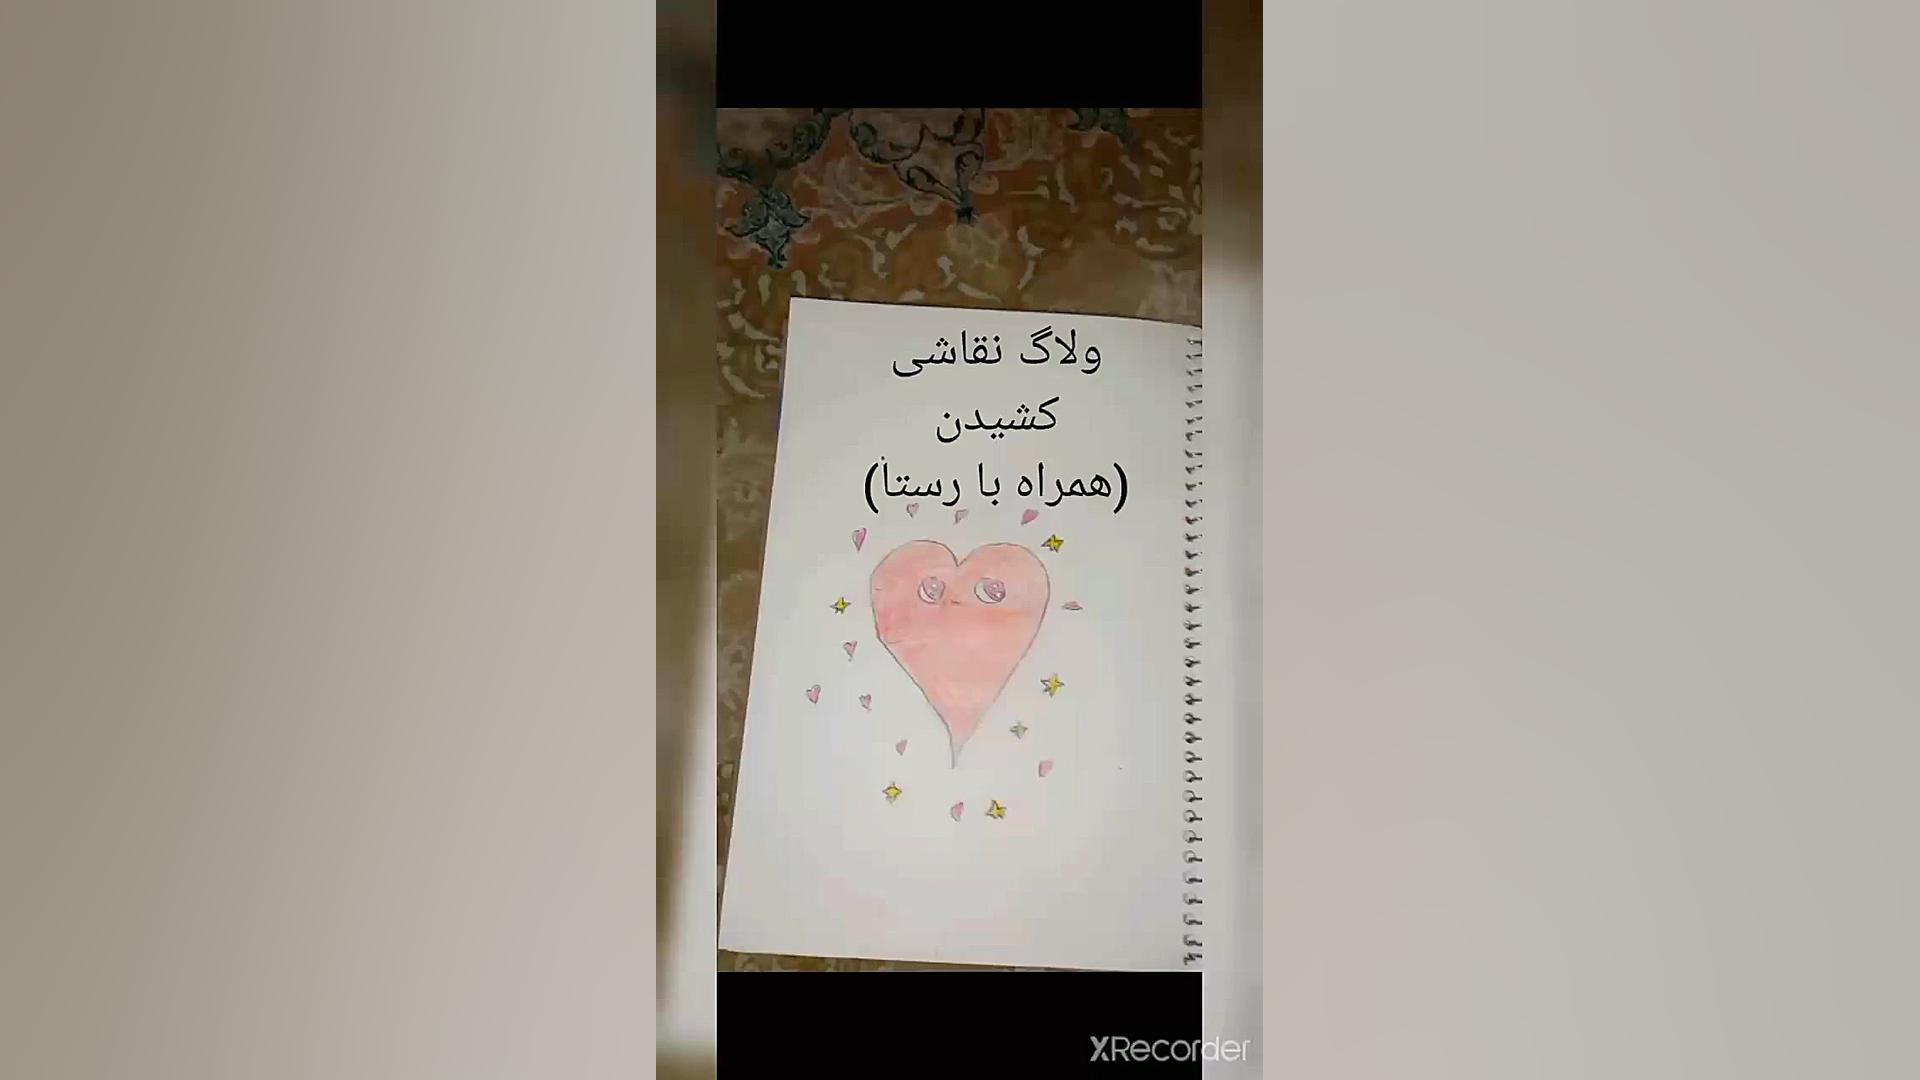 ولاگ نقاشی
کشیدن
(همراه با رستا)
XRecorder